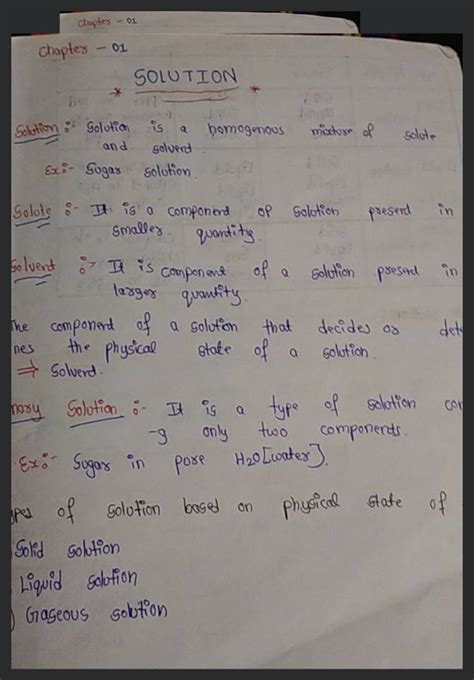 Chapter - 01
Chapter - 01
* SOLUTION *
Solution :- Solution is a homogenous mixture of solute
and solvent.
Ex :- Sugar solution.
Solute :- It is a component of solution present in
smaller quantity.
Solvent :- It is component of a solution present in
larger quantity.
The component of a solution that decides or dete
nes the physical state of a solution.
⇒ Solvent.
nary Solution :- It is a type of solution con
-g only two components.
Ex :- Sugar in pure H2O [water].
ypes of solution based on physical state of
Solid solution
Liquid solution
) Gaseous solution